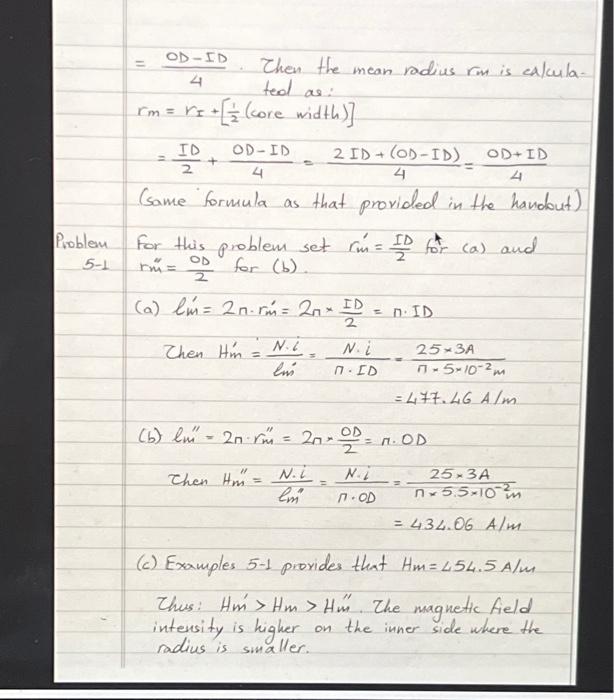 = (OD-ID)/4 . Then the mean radius rm is calcula-
ted as:
rm = rI + [1/2 (core width)]
= ID/2 + (OD-ID)/4 = (2ID+(OD-ID))/4 = (OD+ID)/4
(same formula as that provided in the handout)
Problem 5-1
For this problem set rm' = ID/2 for (a) and
rm'' = OD/2 for (b).
(a) lm' = 2π·rm' = 2π × ID/2 = π·ID
Then Hm' = N·i/lm' = N·i/(π·ID) = 25×3A/(π×5×10⁻²m)
= 477.46 A/m
(b) lm'' = 2π·rm'' = 2π × OD/2 = π·OD
Then Hm'' = N·i/lm'' = N·i/(π·OD) = 25×3A/(π×5.5×10⁻²m)
= 434.06 A/m
(c) Examples 5-1 provides that Hm = 454.5 A/m
Thus: Hm' > Hm > Hm''. The magnetic field
intensity is higher on the inner side where the
radius is smaller.